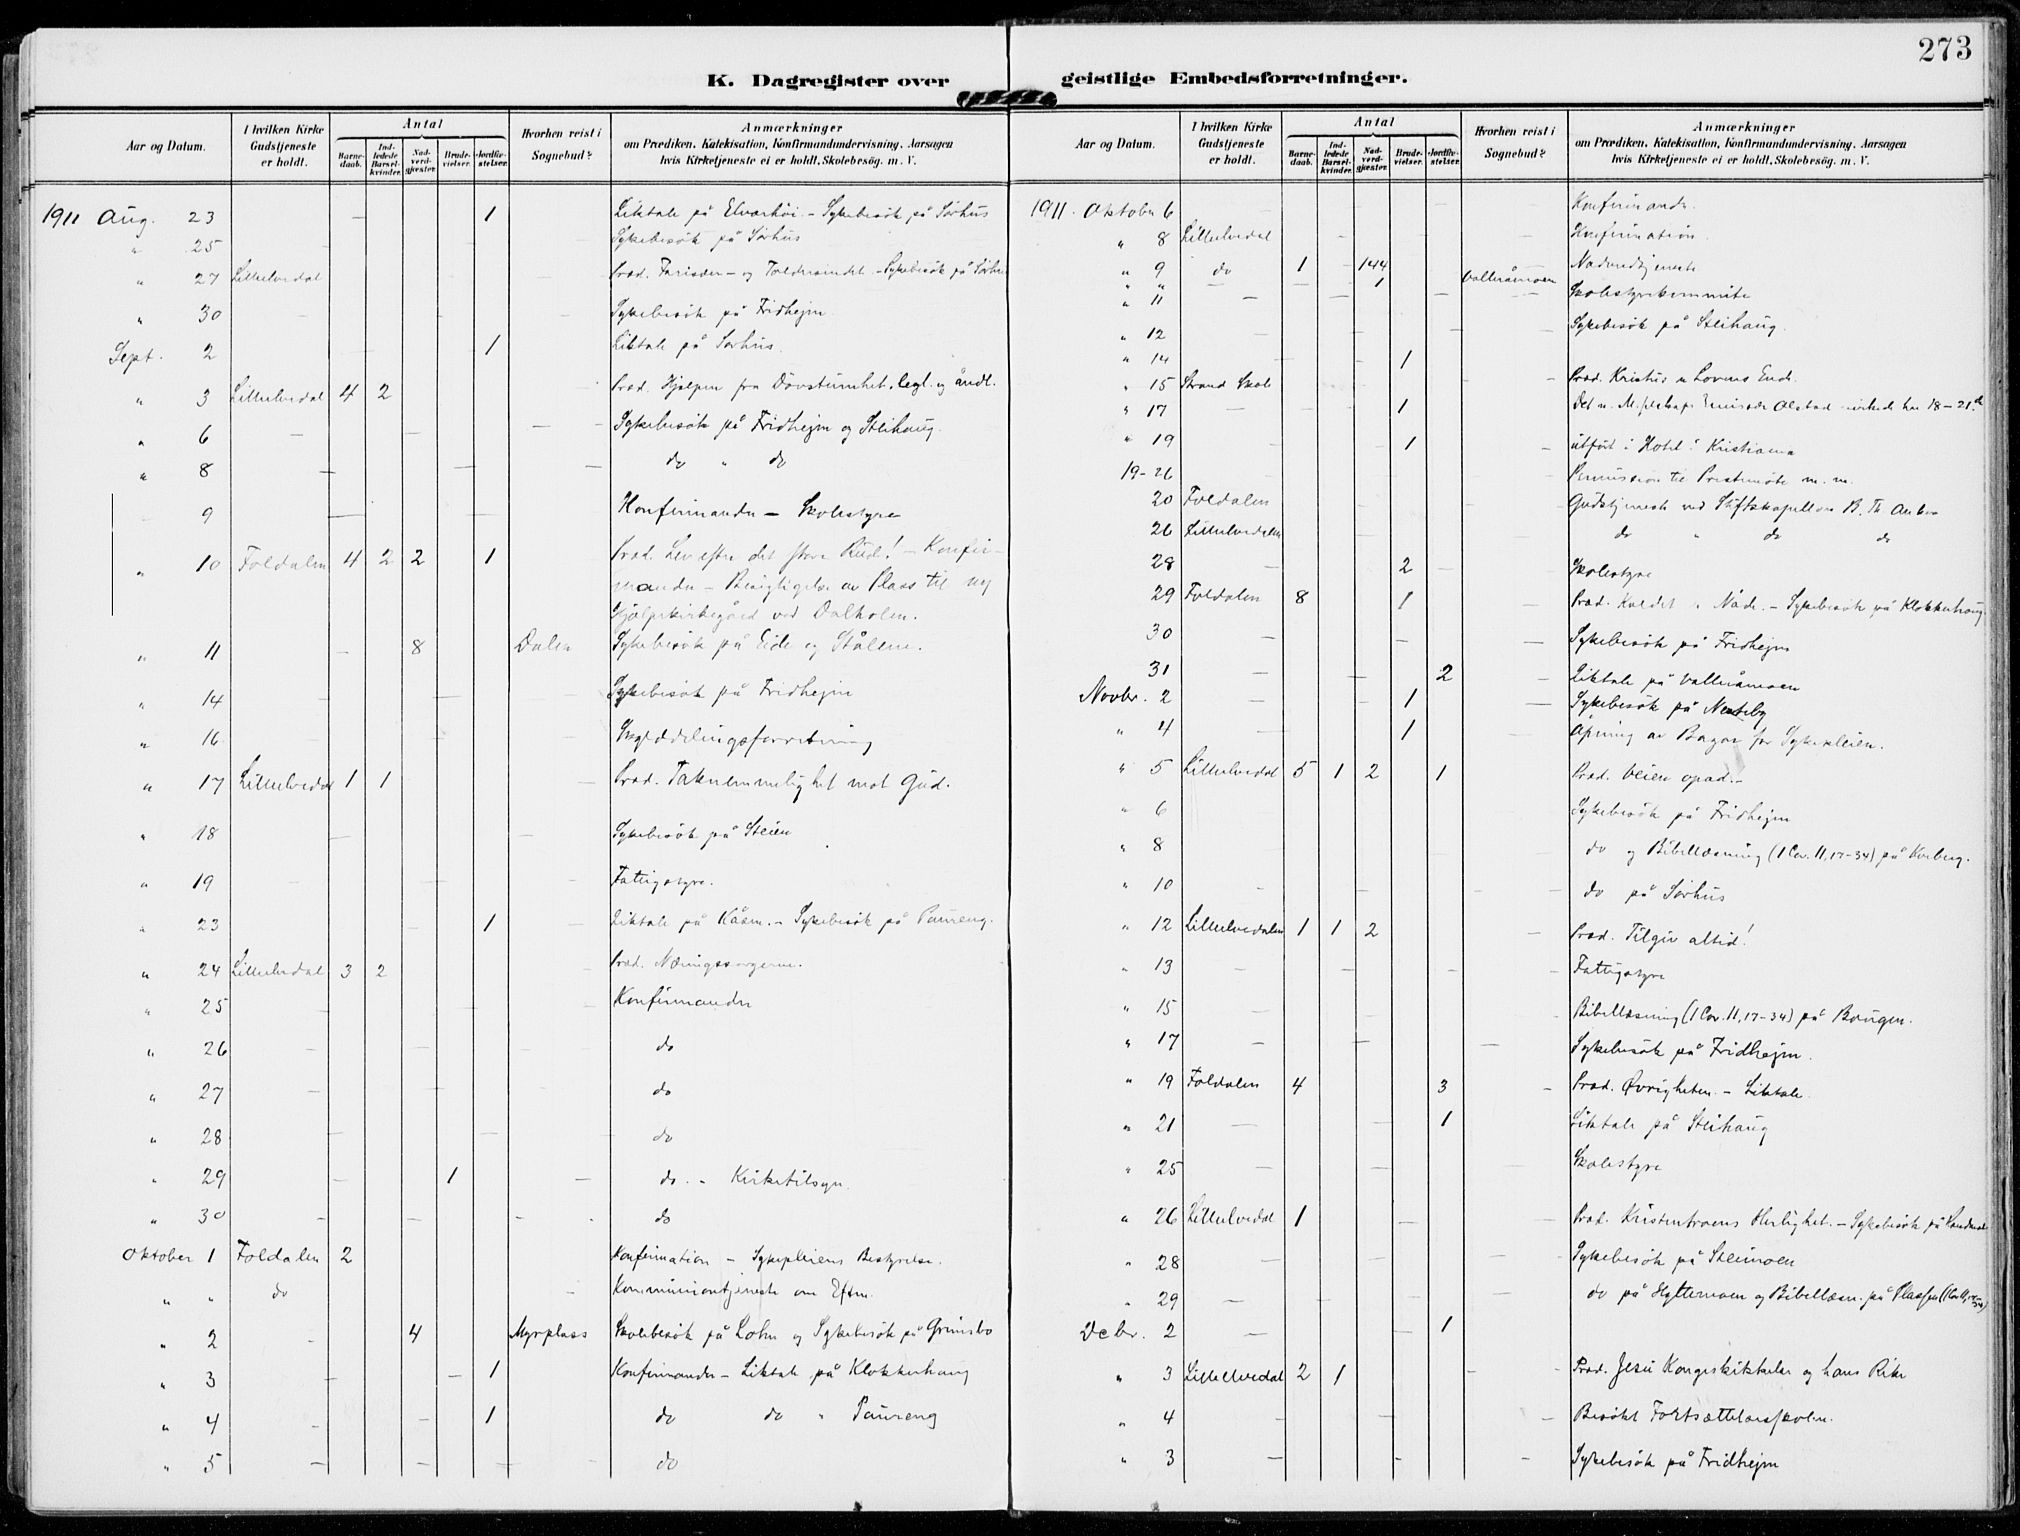 273
K. Dagregister over geistlige Embedsforretninger.
Aar og Datum. I hvilken Kirke Gudstjeneste er holdt. Antal Barne-daab. Ind-ledede Barsel-kvinder. Nad-verd-gjester. Brude-vielser. Jordfæ-stelser. Hvorhen reist i Sognebud? Anmærkninger om Prædiken, Katekisation, Konfirmandundervisning, Aarsagen hvis Kirketjeneste ei er holdt, Skolebesøg, m. V.
1911 Aug. 23 – 1 Liktale på Elvarhöi. – Sykebesök på Sörhus
" 25 – Sykebesök på Sörhus
" 27 Lillelvedal – Præd. – Sykebesök på
" 30 – Sykebesök på Fridhejm
Sept. 2 – 1 Liktale på Sörhus.
" 3 Lillelvedal 4 2 Præd. Hjælpen fra Dövstumhet, legl. og åndl.
" 6 – Sykebesök på Fridhejm og Steihaug.
" 8 – do " do
9 – Konfirmander – Skolestyre
" 10 Foldalen 4 2 2 1 Præd. Lev efter det store Bud! – Konfir-
mander – Besigtigelse av Plass til ny
Hjælpekirkegård ved Dalholen.
" 11 – 8 Dalen Sykebesök på Eide og Stålene.
" 14 – Sykebesök på Fridhejm
" 16 –
" 17 Lillelvedal 1 1 Præd. Taknemmelighet mot Gud.
" 18 – Sykebesök på Steien
" 19 – Fattigstyre.
" 23 – 1 Liktale på Kåsen. – Sykebesök på Paureng.
" 24 Lillelvedal 3 2 Præd. Næringssorgerne.
" 25 – Konfirmander
" 26 – do
" 27 – do
" 28 – do
" 29 – 1 – do. – Kirketilsyn.
" 30 – do
Oktober 1 Foldalen 2 Konfirmation – Sykepleiens Bestyrelse.
" " do – Kommuniontjeneste om Eftm.
" 2 4 Myrplass Skolebesök på Lohn og Sykebesök på Grimsbo
" 3 – 1 Konfirmander – Liktale på Klokkerhaug
" 4 – 1 do do " Paureng
" 5 – do
Aar og Datum. I hvilken Kirke Gudstjeneste er holdt. Antal Barne-daab. Ind-ledede Barsel-kvinder. Nad-verd-gjester. Brude-vielser. Jordfæ-stelser. Hvorhen reist i Sognebud? Anmærkninger om Prædiken, Katekisation, Konfirmandundervisning, Aarsagen hvis Kirketjeneste ei er holdt, Skolebesøg, m. V.
1911. Oktober 6 – Konfirmander.
" 8 Lillelvedal – Konfirmation.
" 9 do 1 144 – Nadverdtjeneste
" " – 1 Vollråmoen
" 11 – Skolestyrekommite
" 12 – Sykebesök på Steihaug.
" 14 – 1
" 15 Strand Skole – Præd. Kristus er Lovens Ende.
" 17 – 1 Olstad virkede her 18–21de
" 19 – 1 utfört i Hotel i Kristiania
19–26 – Permission til Prestemöte m. m.
20 Foldalen – Gudstjeneste ved Stiftskapellan B. Th.
26 Lillelvedalen – do " do do
28 – 2 – Skolestyre
29 Foldalen 8 1 – Præd. Kaldet Nåde. – Sykebesök på Klokkerhaug.
30 – Sykebesök på Fridhejm
31 – 2 – Liktale på Vollråmoen
Novbr. 2 – 1 – Sykebesök på Nesteby
" 4 – 1 Åpning av Bazar for Sykepleien.
" 5 Lillelvedal 5 1 2 1 Præd. Veien opad. –
" 6 – Sykebesök på Fridhejm
" 8 – do og Bibellæsning (1 Cor. 11, 17–34) på Kveberg.
" 10 – do på Sörhus
" 12 Lillelvedalen 1 1 2 Præd. Tilgiv altid!
" 13 – Fattigstyre
" 15 – Bibellæsning (1 Cor. 11, 17–34) på Bougen.
" 17 – Sykebesök på Fridhejm.
" 19 Foldalen 4 3 – Præd. Øvrigheten – Liktale.
" 21 – 1 Liktale på Steihaug
" 25 – Skolestyre
" 26 Lillelvedal 1 – Præd. Kristentroens Herlighet. – Sykebesök på
" 28 – Sykebesök på Steimoen
" 29 – do på Hyttemoen og Bibellæsn. på Plassen
Decbr. 2 – 1
" 3 Lillelvedal 2 1 – Præd. Jesu Kongeskikkelse og hans Rike
" 4 – Besökt Fortsættelsesskolen.
" 3 – Sykebesök på Fridhejm